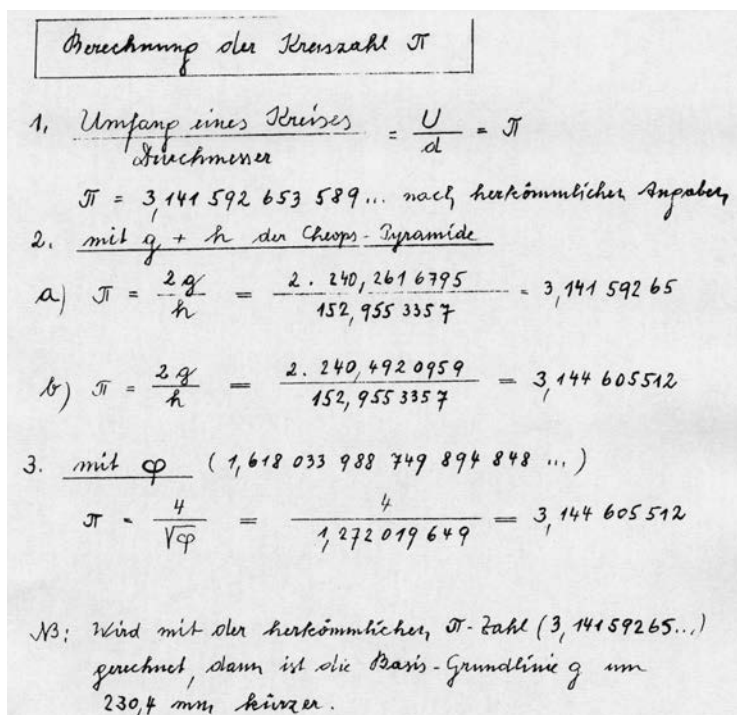 Berechnung der Kreiszahl π
1. Umfang eines Kreises / Durchmesser = U/d = π
π = 3,141 592 653 589... nach herkömmlichen Angaben
2. mit g + h der Cheops-Pyramide
a) π = 2g/h = 2 . 240,261 6795 / 152,955 3357 = 3,141 592 65
b) π = 2g/h = 2. 240,492 0959 / 152,955 3357 = 3,144 605512
3. mit φ (1,618 033 988 749 894 848 ...)
π = 4/√φ = 4/1,272 019 649 = 3,144 605 512
NB: Wird mit der herkömmlichen π-Zahl (3,14159265...)
gerechnet, dann ist die Basis-Grundlinie g um
230,4 mm kürzer.